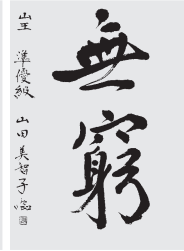 無窮
山王 準優級 山田美智子